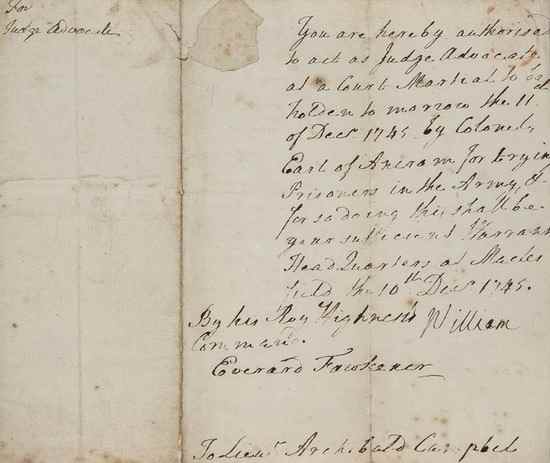 For
Judge Advocate
You are hereby authorised
to act as Judge Advocate
at a Court Martial to be
holden to marrow the 11th
of Decr 1745 by Colonel
Earl of Ancram for trying
Prisoners in the Army, &
for so doing this shall be
your sufficient Warrant
Head Quarters at Maccles
field the 10th Decr 1745.
By his Roy Highness's William
Comman.
Everard Fawkener
To Lieut Archibald Campbel